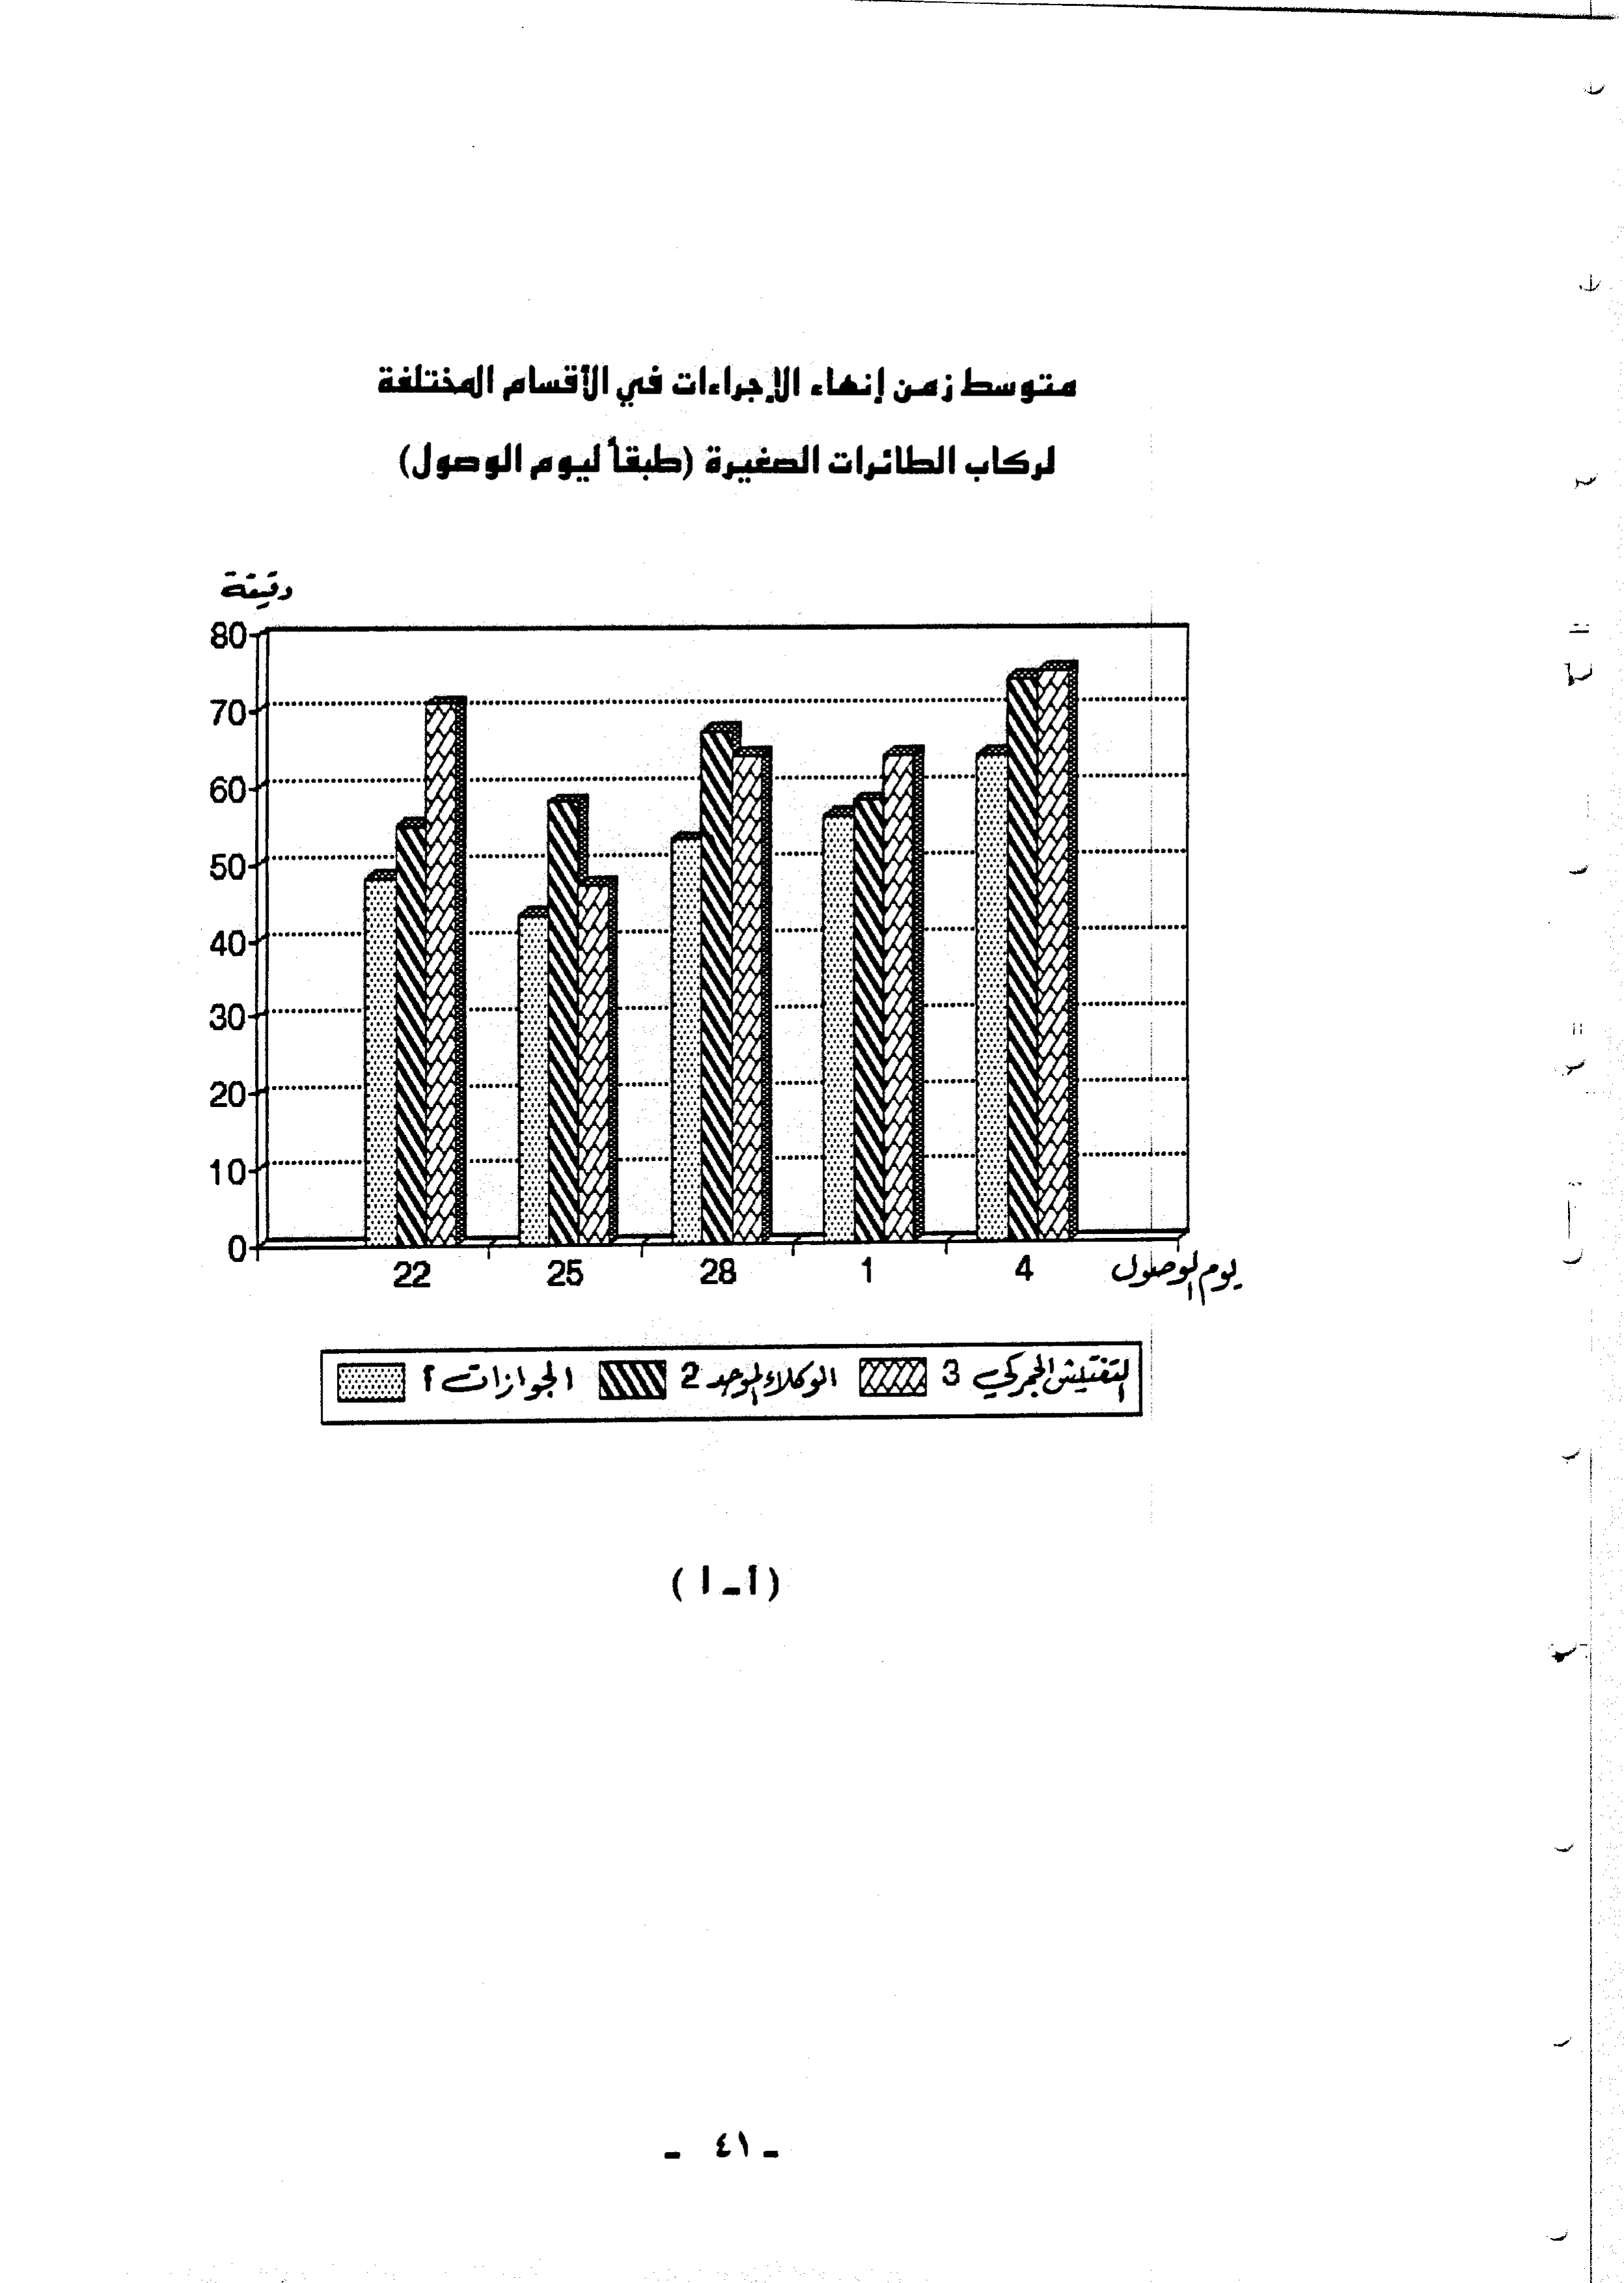 متوسط زمن إنهاء الإجراءات في الأقسام المختلفة
لركاب الطائرات الصغيرة (طبقاً ليوم الوصول)
دقيقة
80
70
60
50
40
30
20
10
0
22 25 28 1 4 يوم الوصول
الجوازات 1 الوكلاء الموحد 2 التفتيش الجمركي 3
(أ-١)
- ٤١ -